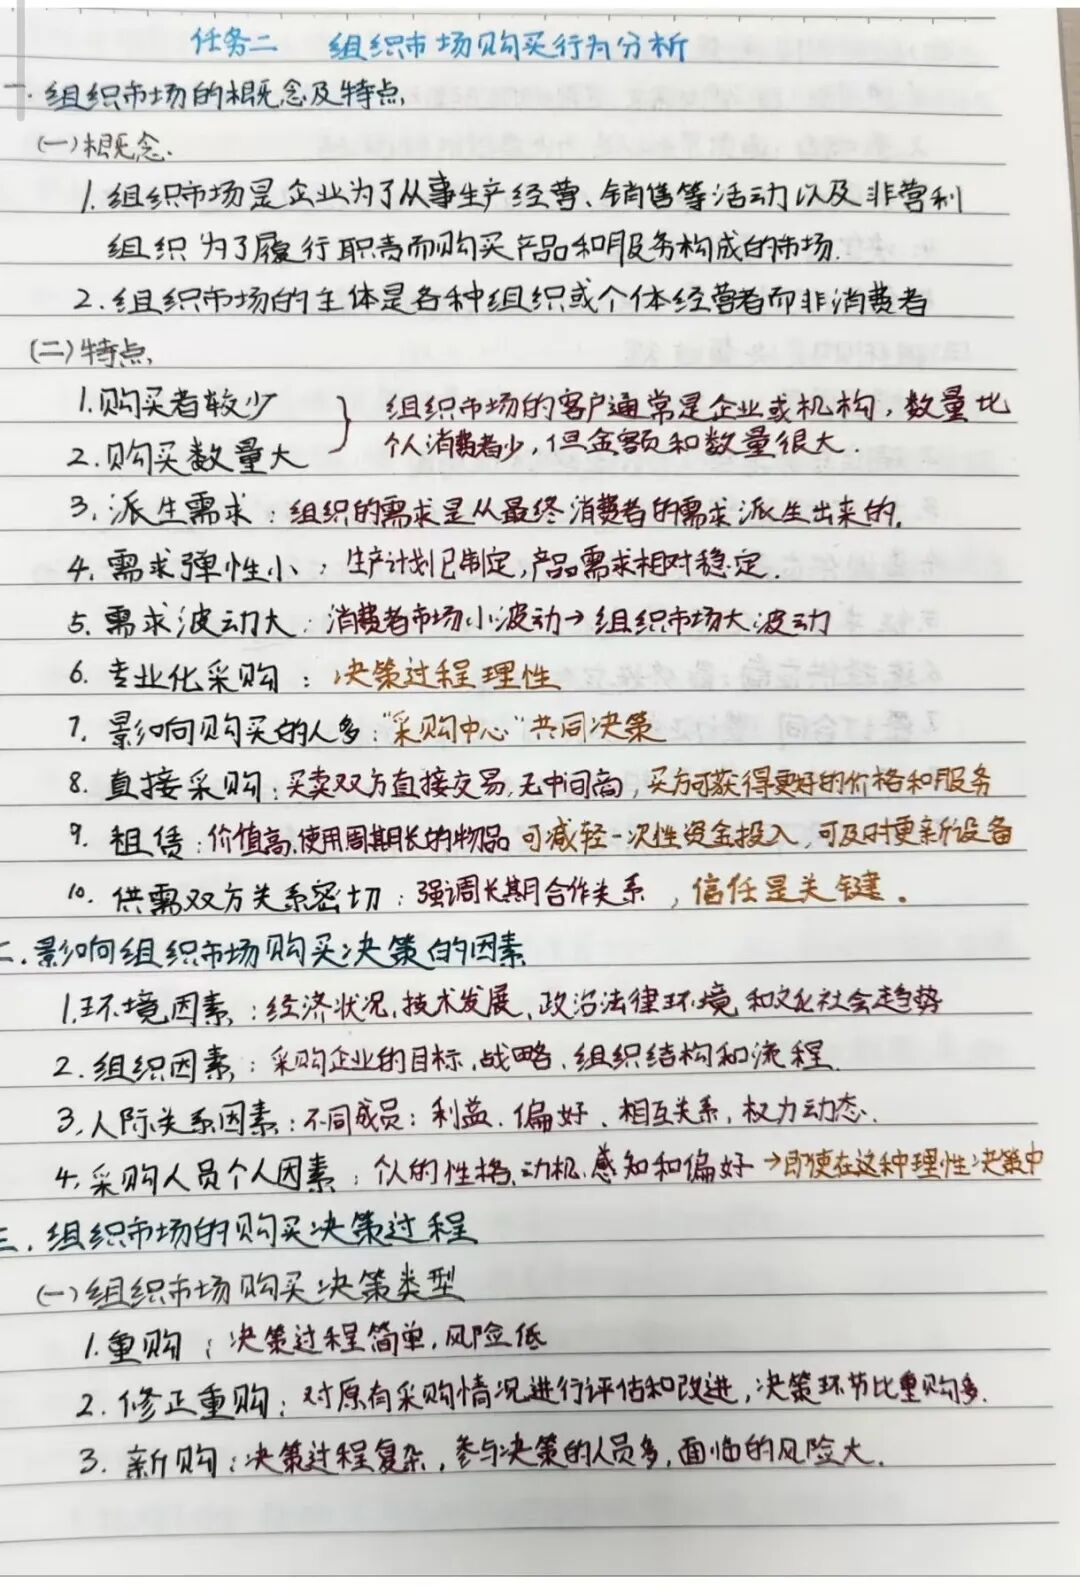 任务二 组织市场购买行为分析
一.组织市场的概念及特点.
(一)概念.
1.组织市场是企业为了从事生产经营、销售等活动以及非营利
组织为了履行职责而购买产品和服务构成的市场.
2.组织市场的主体是各种组织或个体经营者而非消费者
(二)特点.
1.购买者较少 } 组织市场的客户通常是企业或机构,数量比
2.购买数量大 个人消费者少,但金额和数量很大.
3.派生需求:组织的需求是从最终消费者的需求派生出来的.
4.需求弹性小:生产计划已制定,产品需求相对稳定.
5.需求波动大:消费者市场小波动→组织市场大波动
6.专业化采购:决策过程理性
7.影响购买的人多:“采购中心”共同决策
8.直接采购:买卖双方直接交易,无中间商,买方可获得更好的价格和服务
9.租赁:价值高,使用周期长的物品 可减轻一次性资金投入,可及时更新设备
10.供需双方关系密切:强调长期合作关系,信任是关键.
二.影响组织市场购买决策的因素
1.环境因素:经济状况,技术发展、政治法律环境和文化社会趋势
2.组织因素:采购企业的目标,战略、组织结构和流程.
3.人际关系因素:不同成员:利益、偏好、相互关系,权力动态.
4.采购人员个人因素:个人的性格,动机,感知和偏好→即使在这种理性决策中
三.组织市场的购买决策过程
(一)组织市场购买决策类型
1.重购:决策过程简单,风险低
2.修正重购:对原有采购情况进行评估和改进,决策环节比重购多.
3.新购:决策过程复杂,参与决策的人员多,面临的风险大.